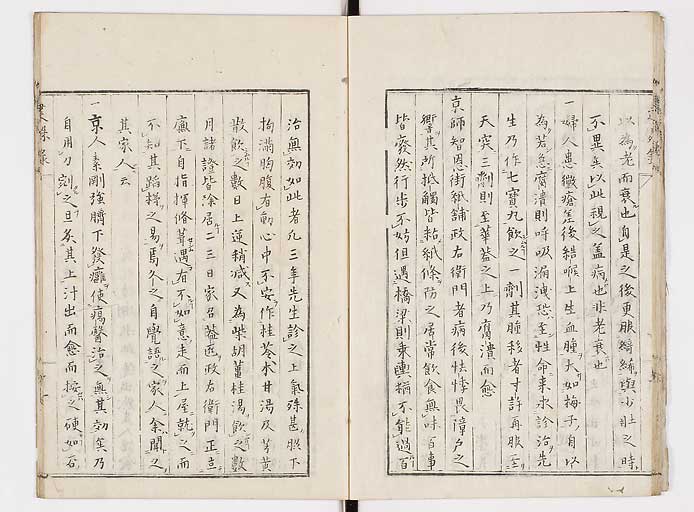 以為老而衰也自是之後更服綺絺與少壮之時
不異矣以此視之盖病也非老衰也
一婦人患黴瘡差後結喉上生血腫大如梅子自以
為若忽腐潰則呼吸漏洩恐至性命来求診治先
生乃作七寳丸飲之一劑其腫移者寸許再服至
天突三劑則至華蓋之上乃腐潰而愈
京師知恩街紙舗政右衛門者病後怯悸畏障戸之
響其所抵觸皆粘紙條防之居常飲食無味百事
皆癈然行歩不妨但遇橋梁則乗輿稱不能過百
治無効如此者凡三年先生診之上氣殊甚臍下
拘滿胸腹有動心中不安作桂苓朮甘湯及芎黄
散飲之數日上逆稍减又為柴胡薑桂湯飲之數
月諸證皆除居二三日家君葢 政右衛門正立
廡下自指揮脩葺遇有不如意走而上屋就之而
不知其蹈梯之易焉久之自覺語之家人余聞之
其家人云
一京人素剛強臍下發癰使瘍醫治之無其効矣乃
自用刀剜之旦矣其上汁出而愈而按之硬如石